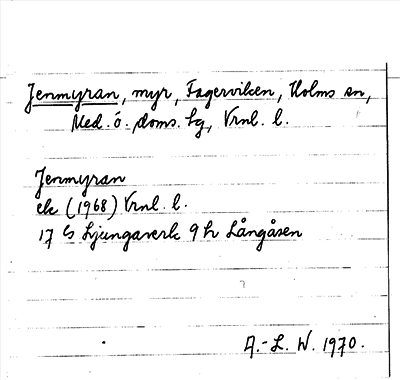 Jenmyran, myr, Fagerviken, Holms sn,
Med. ö. doms. hg, Vrnl. l.
Jenmyran
ek (1968) Vrnl. l.
17 G Ljungaverk 9 h Långåsen
A.-L. W. 1970.